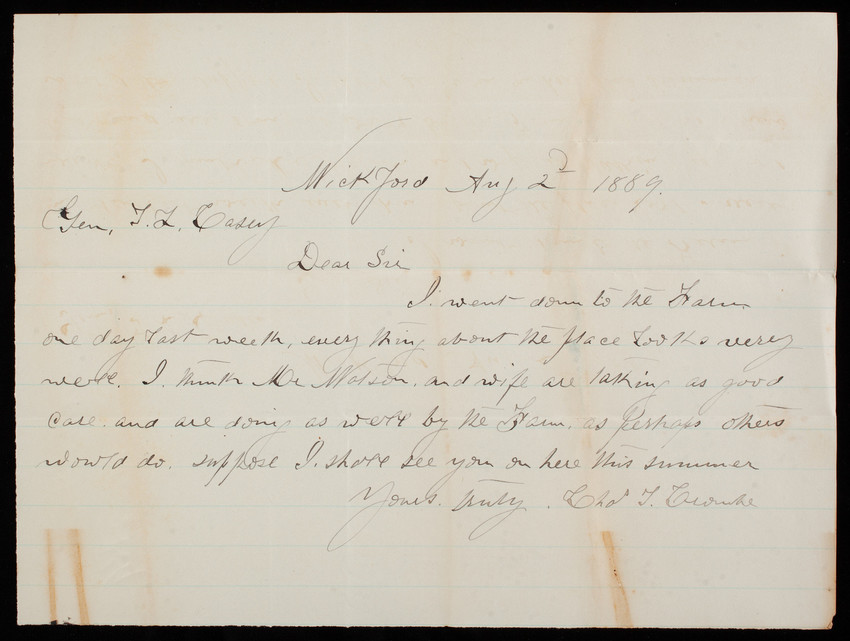 Wickford Aug 2d 1889.
Gen, T. L. Casey
Dear Sir
I. went down to the Farm
one day last week, every thing about the place looks very
well. I. think Mr Watson. and wife are taking as good
care. and are doing as well by the Farm. as perhaps others
would do. suppose I. shall see you on here this summer
Yours. truly. Chas T.